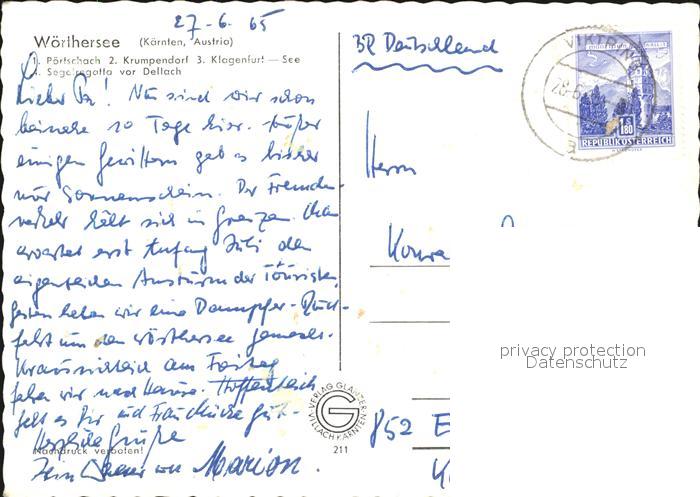 27-6.65
Wörthersee (Kärnten, Austria)
1. Pörtschach 2. Krumpendorf 3. Klagenfurt — See
4. Segelregatta vor Dellach
BR Deutschland
Lieber Pa! Nun sind wir schon
beinahe 10 Tage hier. Außer
einigen Gewittern gab es bisher
nur Sonnenschein. Der Fremden-
verkehr hält sich in Grenzen. Man
erwartet erst Anfang Juli den
eigentlichen Ansturm der Touristen.
Gestern haben wir eine Dampfer-Rund-
fahrt um den Wörthersee gemacht.
Voraussichtlich am Freitag
fahren wir nach Hause. Hoffentlich
geht es Dir und gut.
Herzliche Grüße
Nachdruck verboten!
Dein und Marion.
VERLAG GLANZER
VILLACH-KÄRNTEN
G
211
VIKTRING
28-6
1.80
REPUBLIK ÖSTERREICH
Herrn
Konra
852 E
privacy protection
Datenschutz